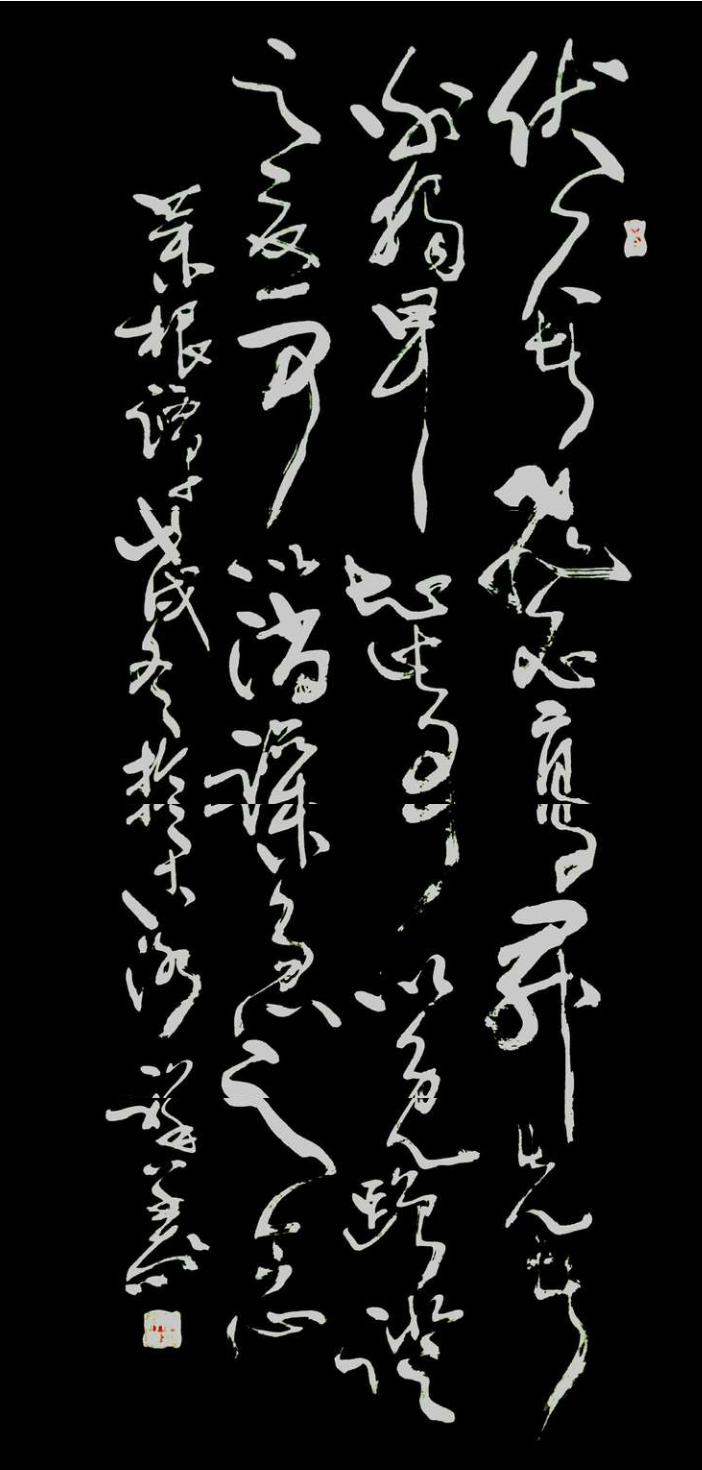 伏久者飛必高開先者
謝獨早知此可以免蹭蹬
之憂可以消躁急之念
菜根譚戊戌冬於